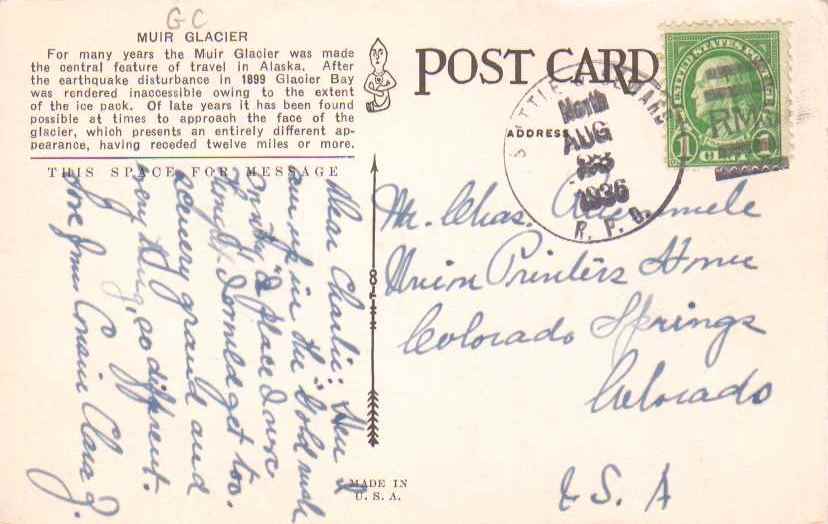 GC
MUIR GLACIER
For many years the Muir Glacier was made
the central feature of travel in Alaska. After
the earthquake disturbance in 1899 Glacier Bay
was rendered inaccessible owing to the extent
of the ice pack. Of late years it has been found
possible at times to approach the face of the
glacier, which presents an entirely different ap-
pearance, having receded twelve miles or more.
THIS SPACE FOR MESSAGE
Dear Charlie: Here I
am up in the "Gold rush
Country" a place I never
thought I would get too.
Scenery grand and
every thing so different.
Love from Cousin Clara J.
POST CARD
ADDRESS
SEATTLE & SEWARD
North
AUG
1936
R. P. O.
UNITED STATES POSTAGE
1 CENT 1
RMS
Mr. Chas.
Union Printers Home
Colorado Springs
Colorado
U.S.A
MADE IN
U. S. A.